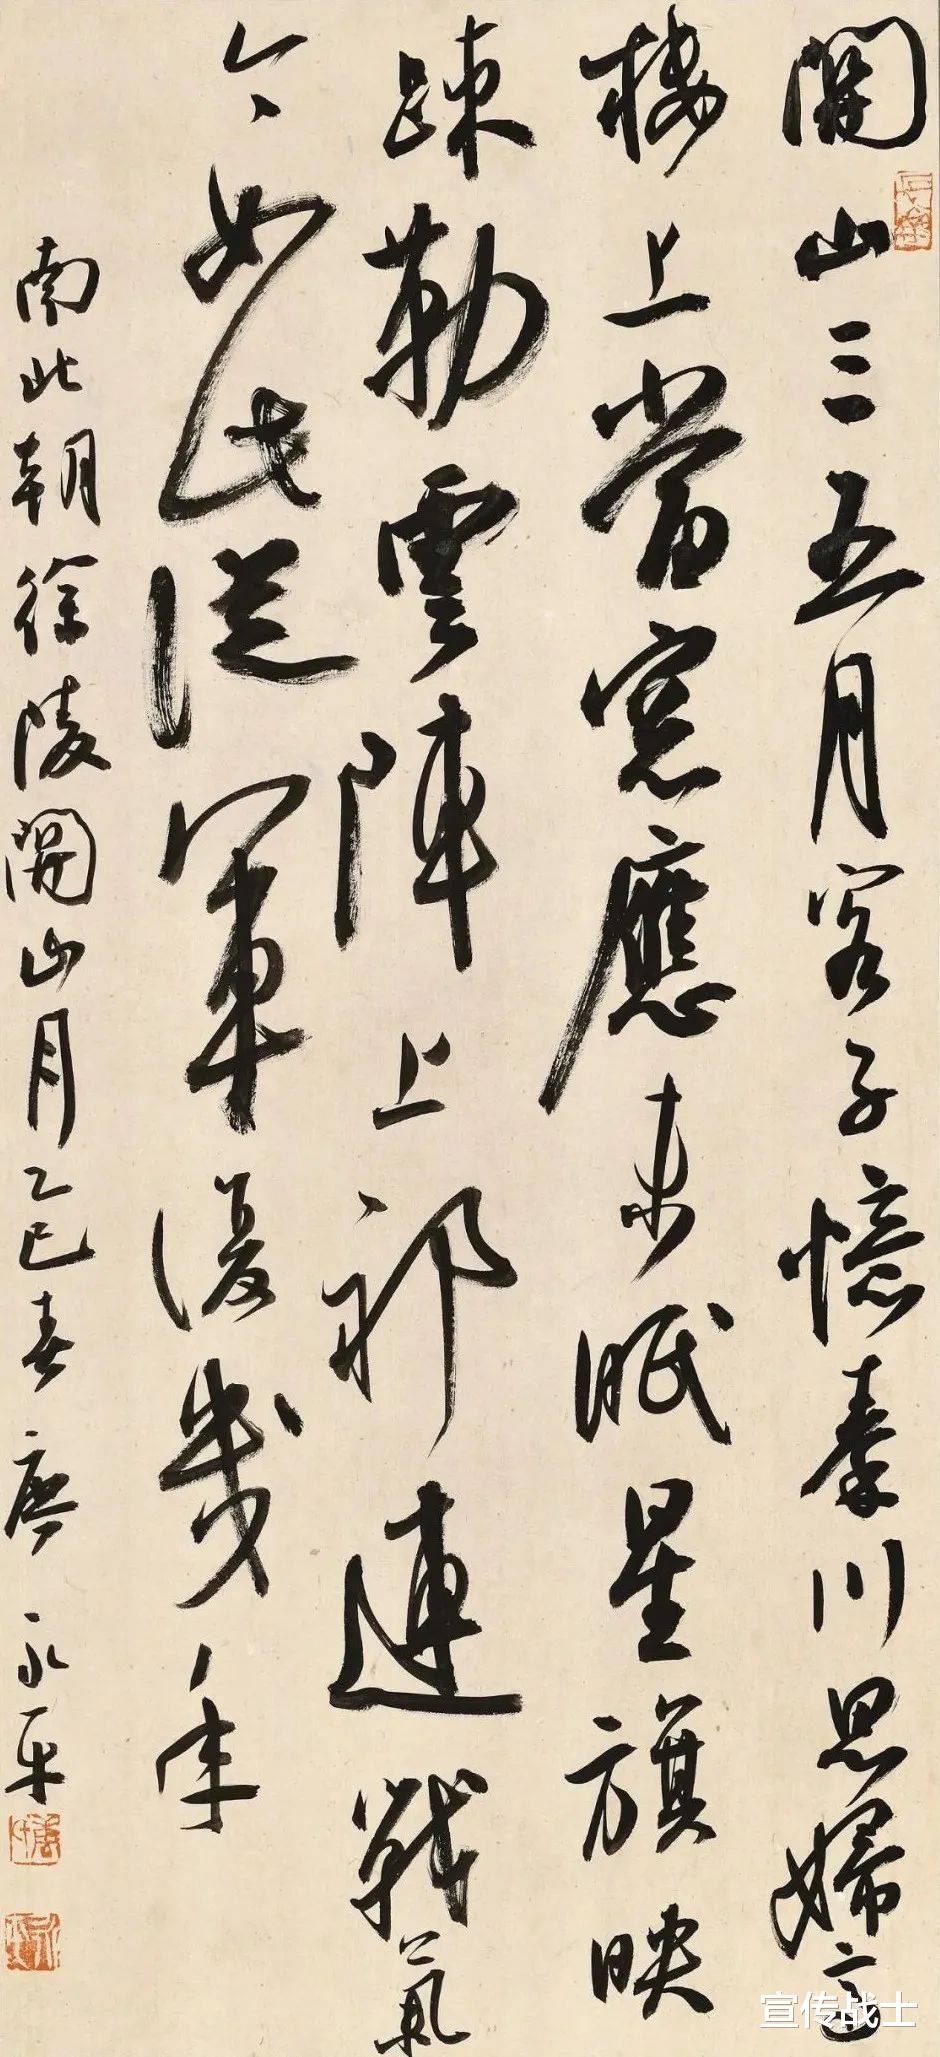 關山三五月客子憶秦川思婦高
樓上當窓應未眠星旗映
疎勒雲陣上祁連戰氣
今如此從軍復幾年
南北朝徐陵關山月乙巳春永平
宣传战士